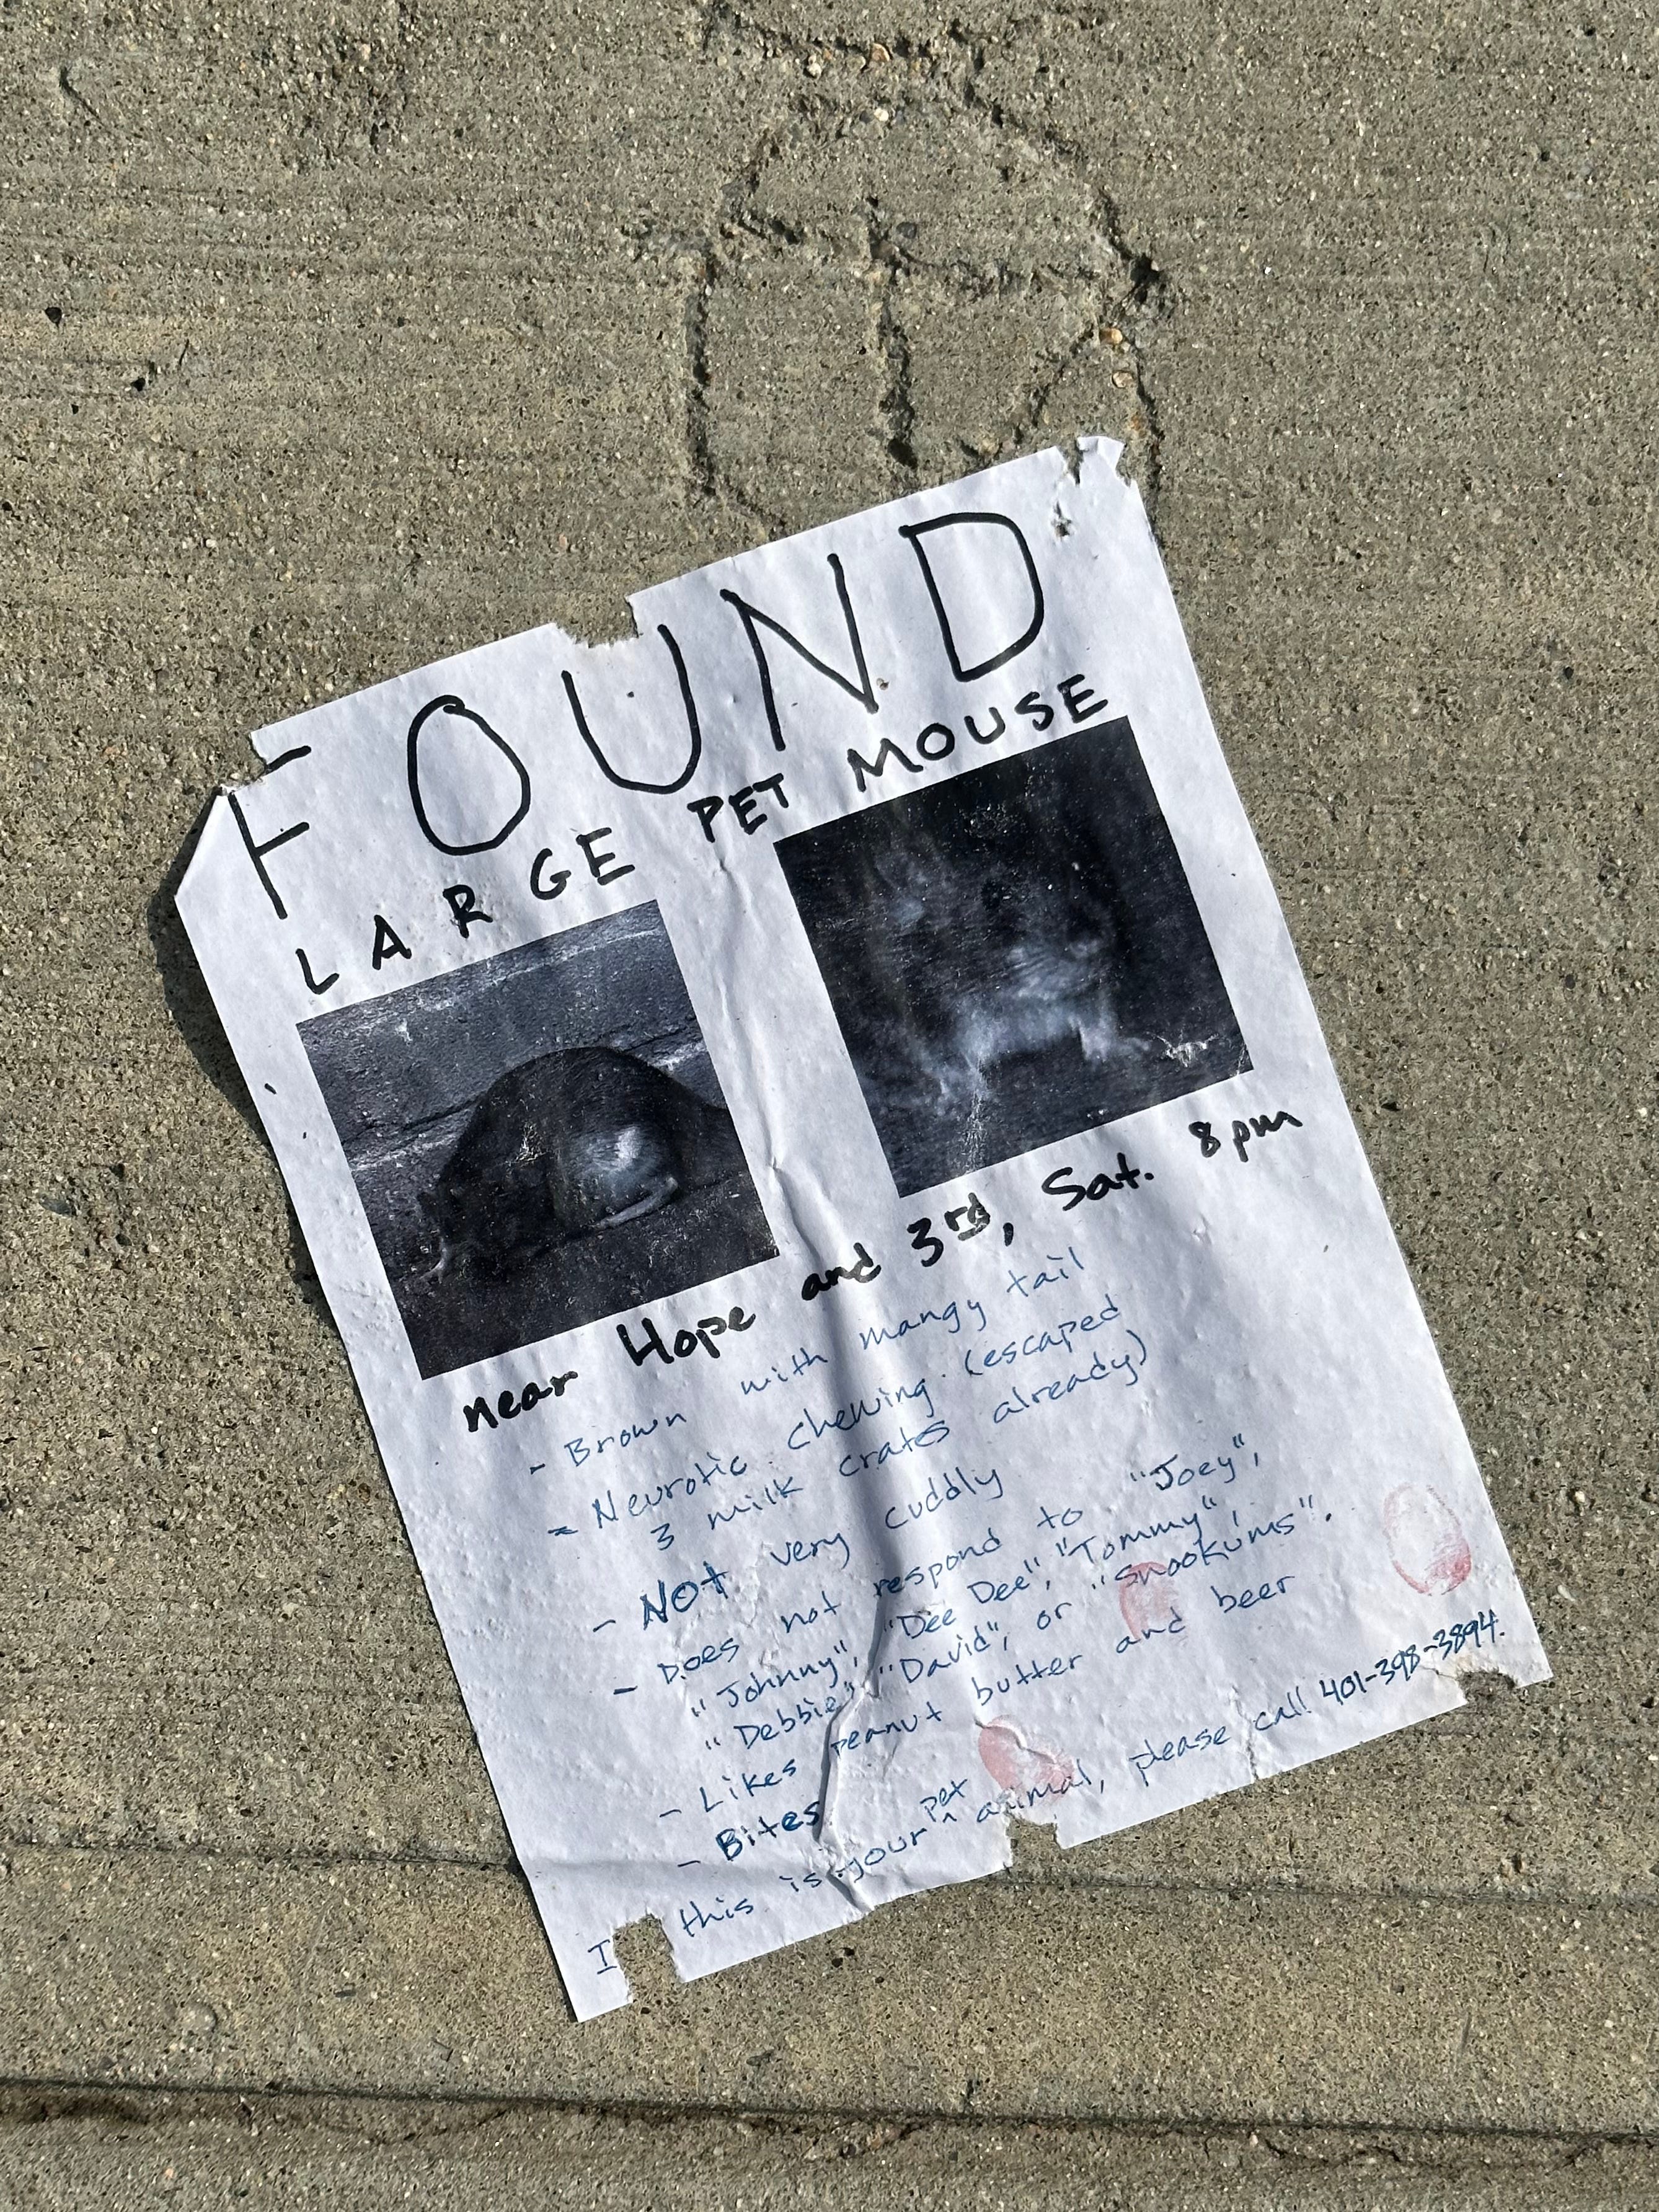 FOUND
LARGE PET MOUSE
near Hope and 3rd, Sat. 8pm
- Brown with mangy tail
- Neurotic chewing. (escaped
3 milk crates already)
- NOT very cuddly
- Does not respond to "Joey",
"Johnny", "Dee Dee", "Tommy",
"Debbie", "David", or "Snookums".
- Likes peanut butter and beer
- Bites
I this is your ^ pet animal, please call 401-398-3894.